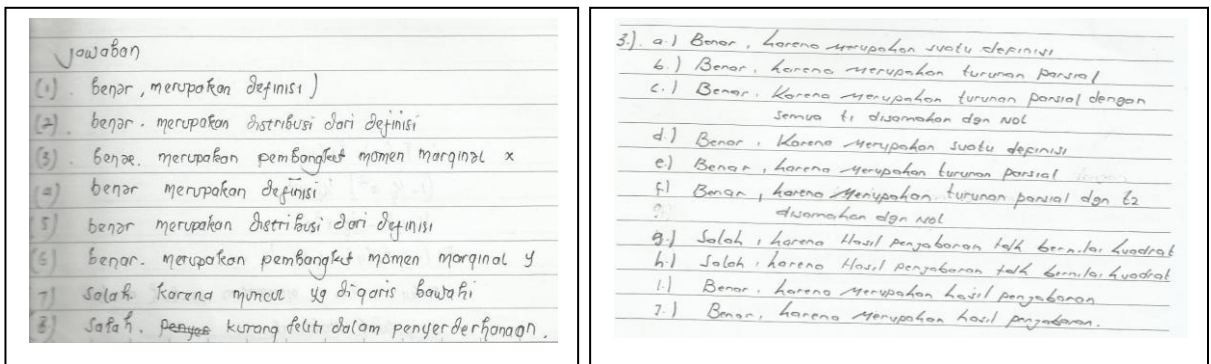 Jawaban
(1). benar, merupakan definisi)
(2). benar. merupakan distribusi dari definisi
(3). benar. merupakan pembangkit momen marginal x
(4) benar merupakan definisi
(5) benar merupakan distribusi dari definisi
(6) benar. merupakan pembangkit momen marginal y
7) Salah. karena muncul yg digaris bawahi
(8) Salah. kurang teliti dalam penyerderhanaan.
3.). a.) Benar, karena merupakan suatu definisi
b.) Benar, karena merupakan turunan parsial
c.) Benar. Karena merupakan turunan parsial dengan
semua t1 disamakan dgn Nol
d.) Benar. Karena merupakan suatu definisi
e.) Benar, karena merupakan turunan parsial
f.) Benar, karena merupakan turunan parsial dgn t2
disamakan dgn Nol
g.) Salah, karena Hasil penjabaran tdk bernilai kuadrat
h.) Salah, karena Hasil penjabaran tdk bernilai kuadrat
i.) Benar, karena merupakan hasil penjabaran
J.) Benar, karena merupakan hasil penjabaran.